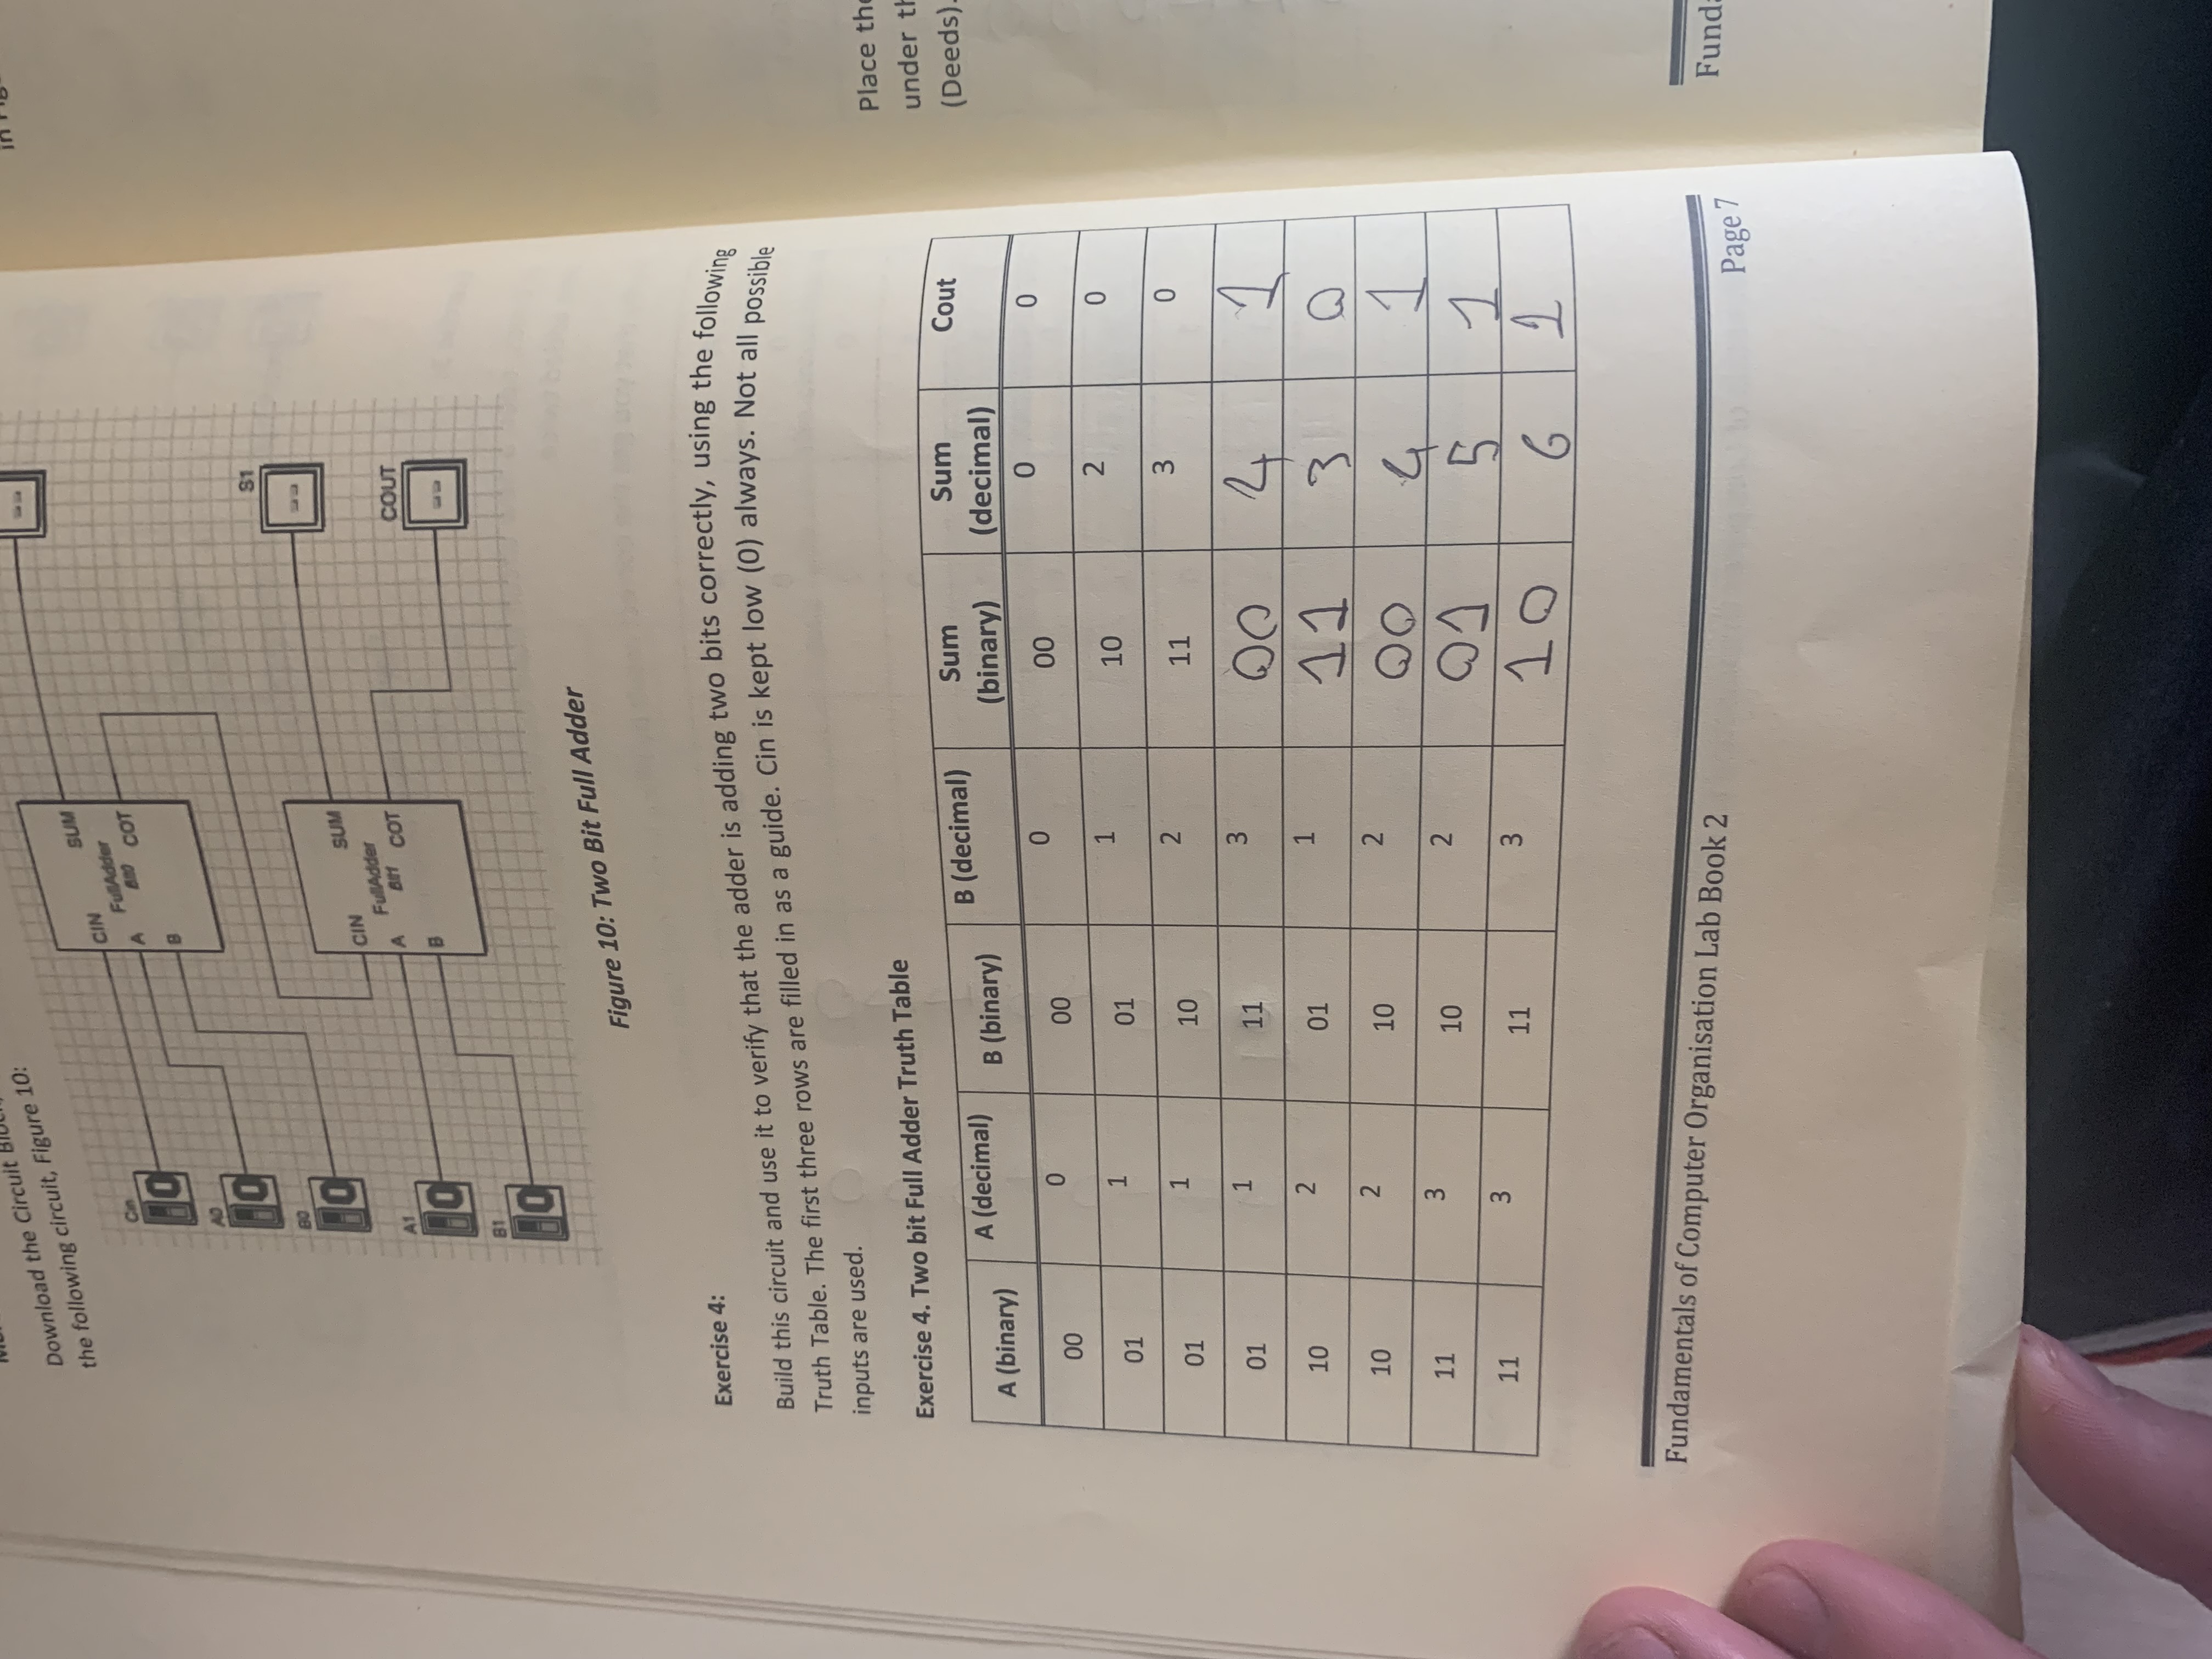 Download the Circuit
the following circuit, Figure 10:
Cin
0
A0
0
B0
0
A1
0
B1
0
CIN
SUM
FullAdder
A
Bit0
COT
B
CIN
SUM
FullAdder
A
Bit1
COT
B
--
S1
--
COUT
--
Figure 10: Two Bit Full Adder
Exercise 4:
Build this circuit and use it to verify that the adder is adding two bits correctly, using the following
Truth Table. The first three rows are filled in as a guide. Cin is kept low (0) always. Not all possible
inputs are used.
Exercise 4. Two bit Full Adder Truth Table
A (binary) A (decimal) B (binary) B (decimal) Sum (binary) Sum (decimal) Cout
00 0 00 0 00 0 0
01 1 01 1 10 2 0
01 1 10 2 11 3 0
01 1 11 3 00 4 1
10 2 01 1 11 3 0
10 2 10 2 00 4 1
11 3 10 2 01 5 1
11 3 11 3 10 6 1
Fundamentals of Computer Organisation Lab Book 2
Page 7
in
Place the
under
(Deeds).